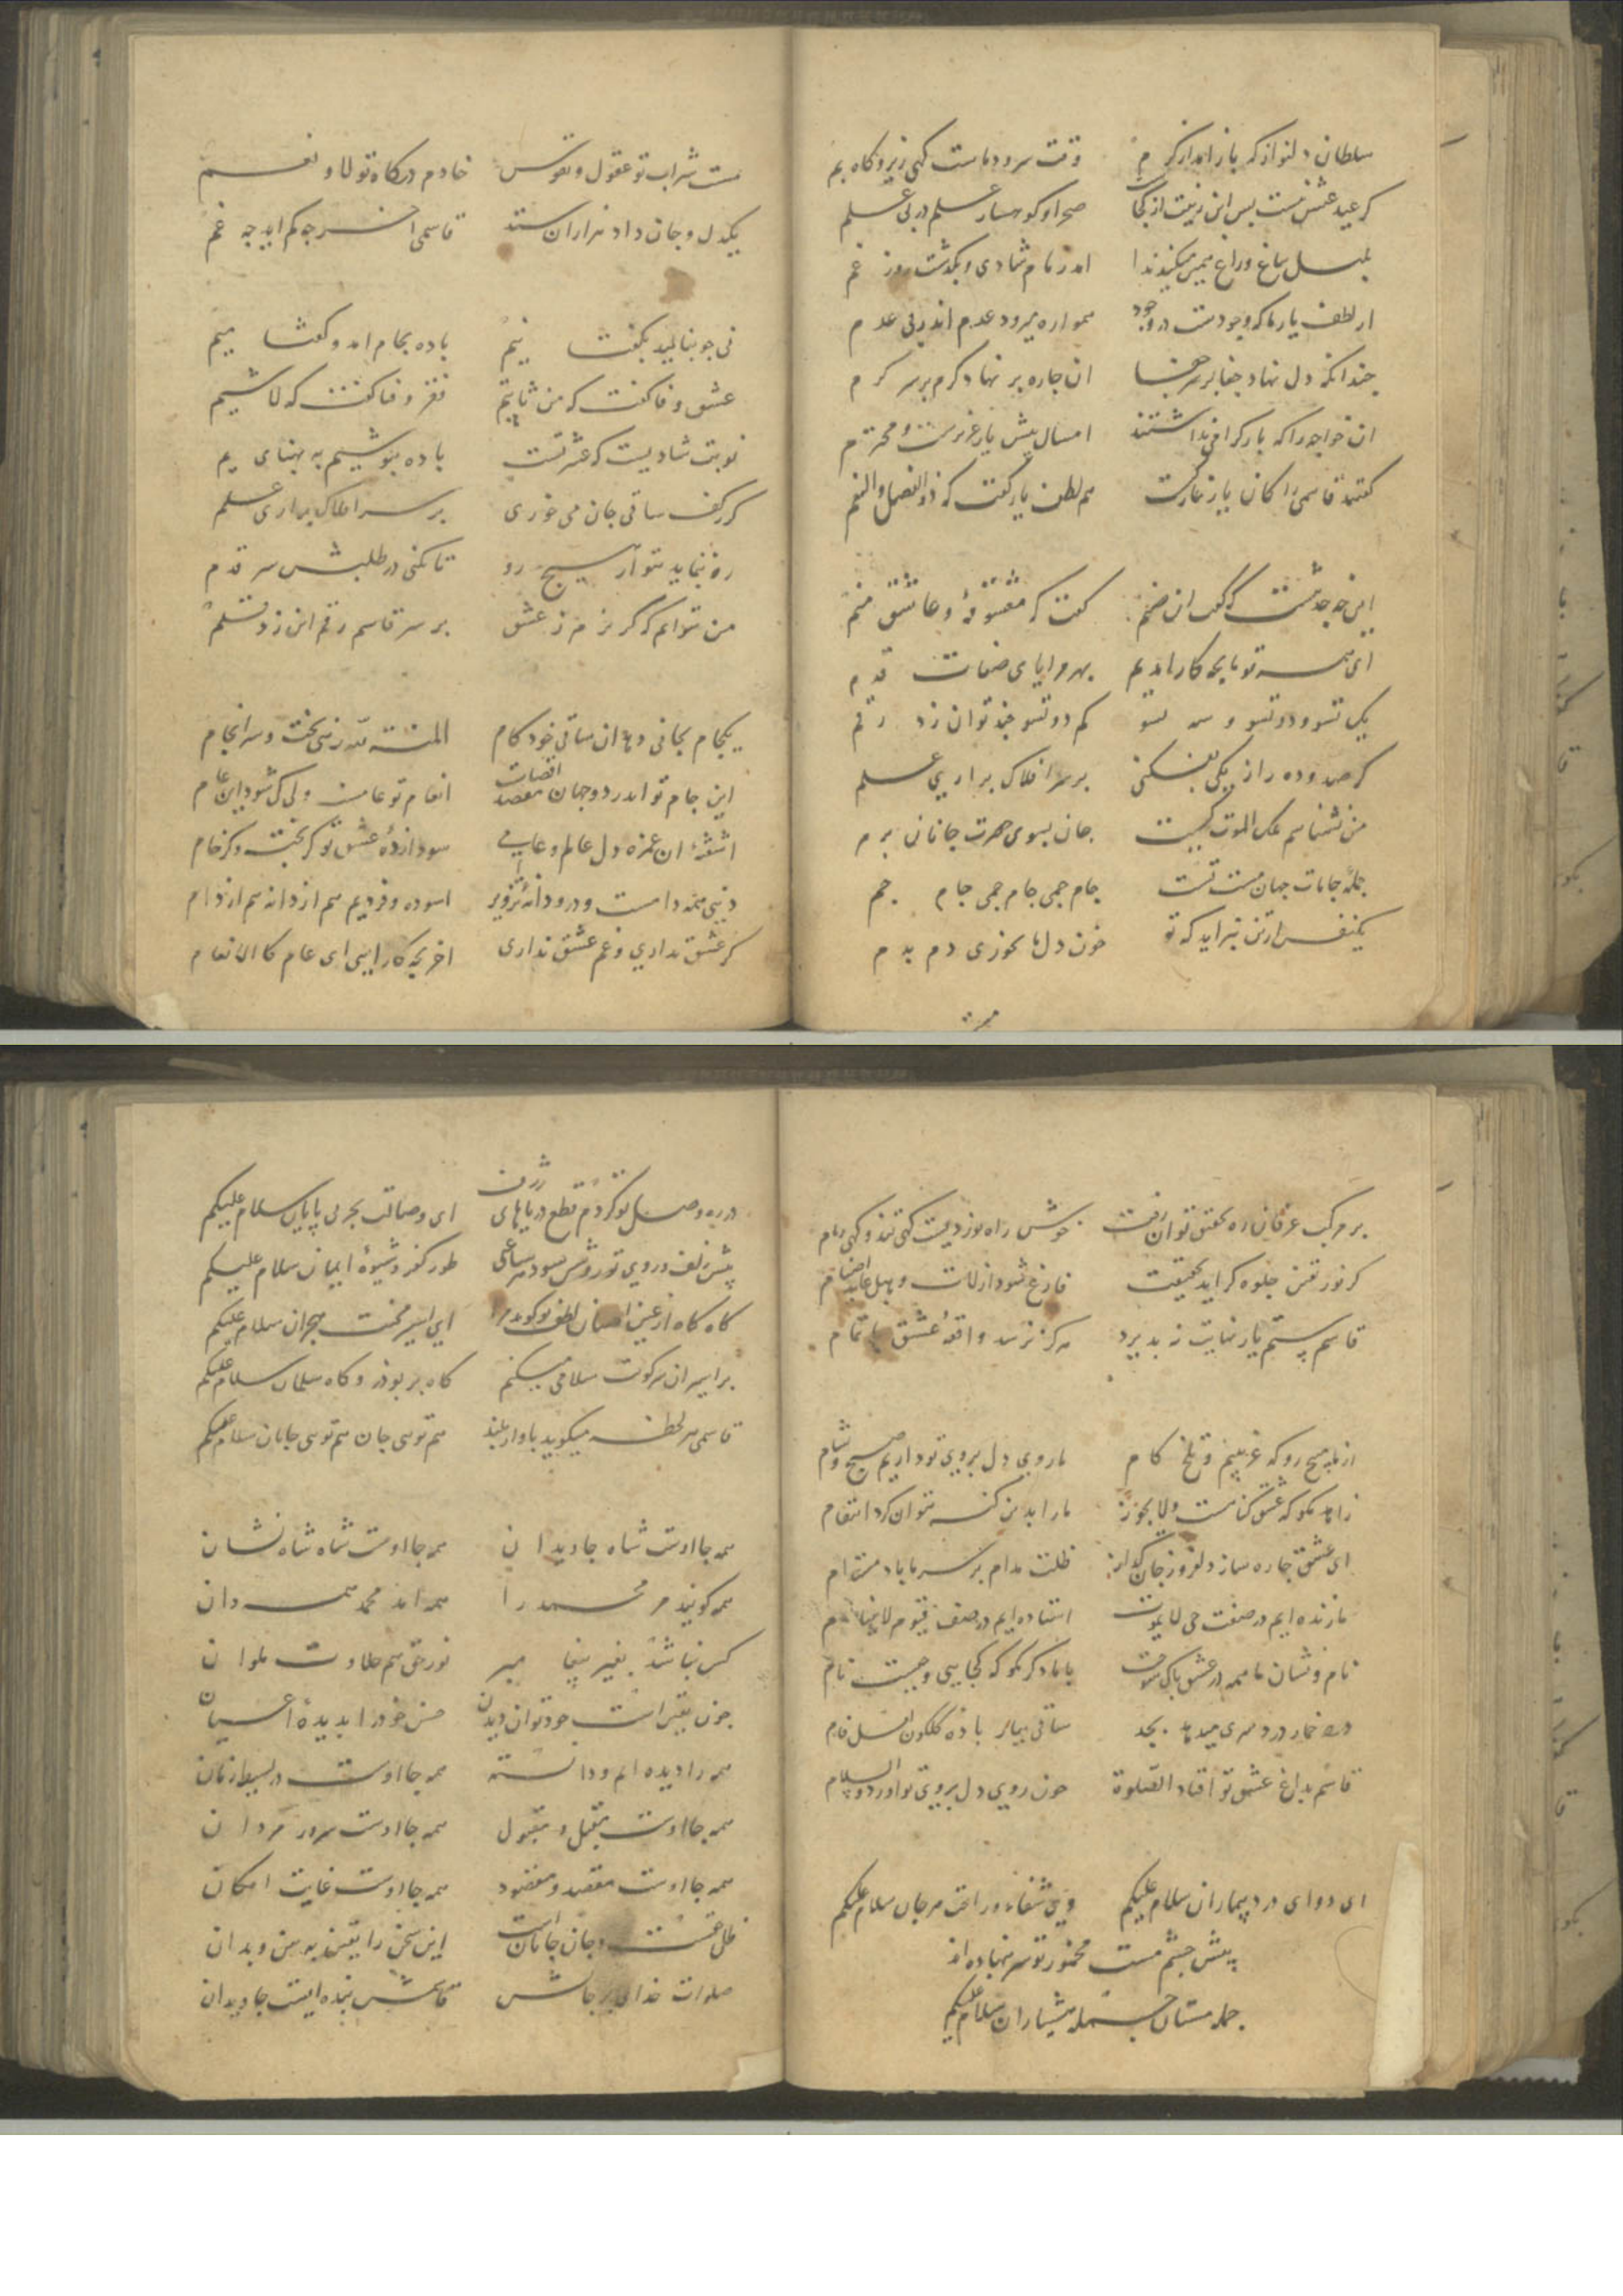 سلطان دلنواز که باز امد از کرم وقت سرود ماست کهی زیر و کاه بم
کر عید عشق نیست پس این زینت از کجاست صحرا و کوهسار علم در پی علم
بلبل بباغ و راغ همین میکند ندا امد زمام شادی و بگذشت روز غم
از لطف یار ما که وجودست در وجود همواره میرود عدم اندر پی عدم
چندانکه دل نهاد جفا بر سر جفا ان چاره بر نهاد کرم بر سر کرم
ان خواجه را که پار کرامی نداشتند امسال پیش یار عزیزست و محترم
کفتند قاسمی را کان یار هم لطف یار کفت که ذو الفضل والنعم
این چه حدیثست که کفت ان صنم کفت که معشوقه و عاشق منم
ای همه تو ما بچه کار امدیم بهر مرایای صفات قدم
یک تسو و دو تسو و سه تسو کم دو تسو چند توان زد رقم
کر صد و ده را ز یکی بفکنی بر سر افلاک براری علم
من نشناسم ملک الموت کیست جان بسوی حضرت جانان برم
جمله جامات جهان مست تست جام جمی جام جمی جام جم
یکنفس ازتن نبراید که تو خون دل ما نخوری دم بدم
مست شراب تو عقول و نفوس خادم درکاه تو لا و نعم
یکدل و جان داد هزاران ستد قاسمی اخر چه کم اید چه غم
نی چو بنالید بکفت نیم باده بجام امد و کفتا میم
عشق و فا کفت که من ثابتم فقر و فنا کفت که لا شییم
نوبت شادیست که عشرتست باده بنوشیم به بهنای یم
کر زکف ساقی جان می خوری بر سر افلاک براری علم
ره ننماید بتو از هیچ رو تا نکنی در طلبش سر قدم
من نتوانم که کریزم ز عشق بر سر قاسم رقم این زد قلم
یکجام بجانی دهد ان ساقی خودکام المنته لله زهی بخت و سرانجام
این جام تو اندر دو جهان مقصد اقصاست انعام تو عامست ولی کی شود این عام
اشفته ان غمزه دل عالم و عامی سودازده عشق تو کر پخته و کر خام
دنیی همه دامست و درو دانه تزویر اسوده و فردیم هم از دانه هم از دام
کر عشق نداری و غم عشق نداری اخر بچه کار ایی ای عام کالانعام
بر مرکب عرفان ره تحقیق توان رفت خوش راه نوردیست کهی تند و کهی رام
کر نور یقین جلوه کر اید بحقیقت فارغ شود از لات و هبل عابد اصنام
قاسم ستم یار نهایت نپذیرد هرکز نرسد واقعه عشق باتمام
از ما مپیچ رو که غریبیم و تلخ کام ما روی دل بروی تو داریم صبح و شام
زاهد مکو که عشق کناهست و لا یجوز ما را بدین کنه نتوان کرد انتقام
ای عشق چاره ساز دلفروز جان کداز ظلت مدام بر سر ما باد مستدام
ما زنده ایم در صفت حی لا یموت استاده ایم در صف قیوم لا ینام
نام و نشان ما همه در عشق پاک سوخت با ما دکر مکو که کجایی و چیست نام
درد خمار دردسری میدهد بجد ساقی بیار باده کلکون لعل فام
قاسم بداغ عشق تو افتاد الصلوة چون روی دل بروی تو اورد و السلام
ای دوای درد بیماران سلام علیکم وی شفاء و راحت هر جان سلام علیکم
پیش چشم مست مخمور تو سر بنهاده اند
جمله مستان جمله هشیاران سلام علیکم
در ره وصل تو کردم قطع دریاهای ژرف ای وصالت بحر بی پایان سلام علیکم
پیش زلف و روی تو روشن شود هر ساعتی طور کفر و شیوه ایمان سلام علیکم
کاه کاه از عین احسان لطف تو کوید مرا ای اسیر محنت هجران سلام علیکم
بر اسیران سر کویت سلامی میکنم کاه بر بوذر و کاه سلمان سلام علیکم
قاسمی هر لحظه میکوید باواز بلند هم تویی جان هم تویی جانان سلام علیکم
همه جا اوست شاه جاویدان همه جا اوست شاه شاه نشان
همه کویند مر محمد را همه اند محمد همدان
کس نباشد بغیر پیغامبر نور حق هم حلاوت
چون بغیر است خود توان دیدن حسن خود را بدیده اعیان
همه را دیده ام و دانسته همه جا اوست در بسیط زمان
همه جا اوست مقبل و مقبول همه جا اوست سرور مردان
همه جا اوست مقصد و مقصود همه جا اوست غایت امکان
ظل حقست و جان جانانست این سخن را یقین بدان
صلوات خدای بر جانش قاسمش بنده ایست جاویدان